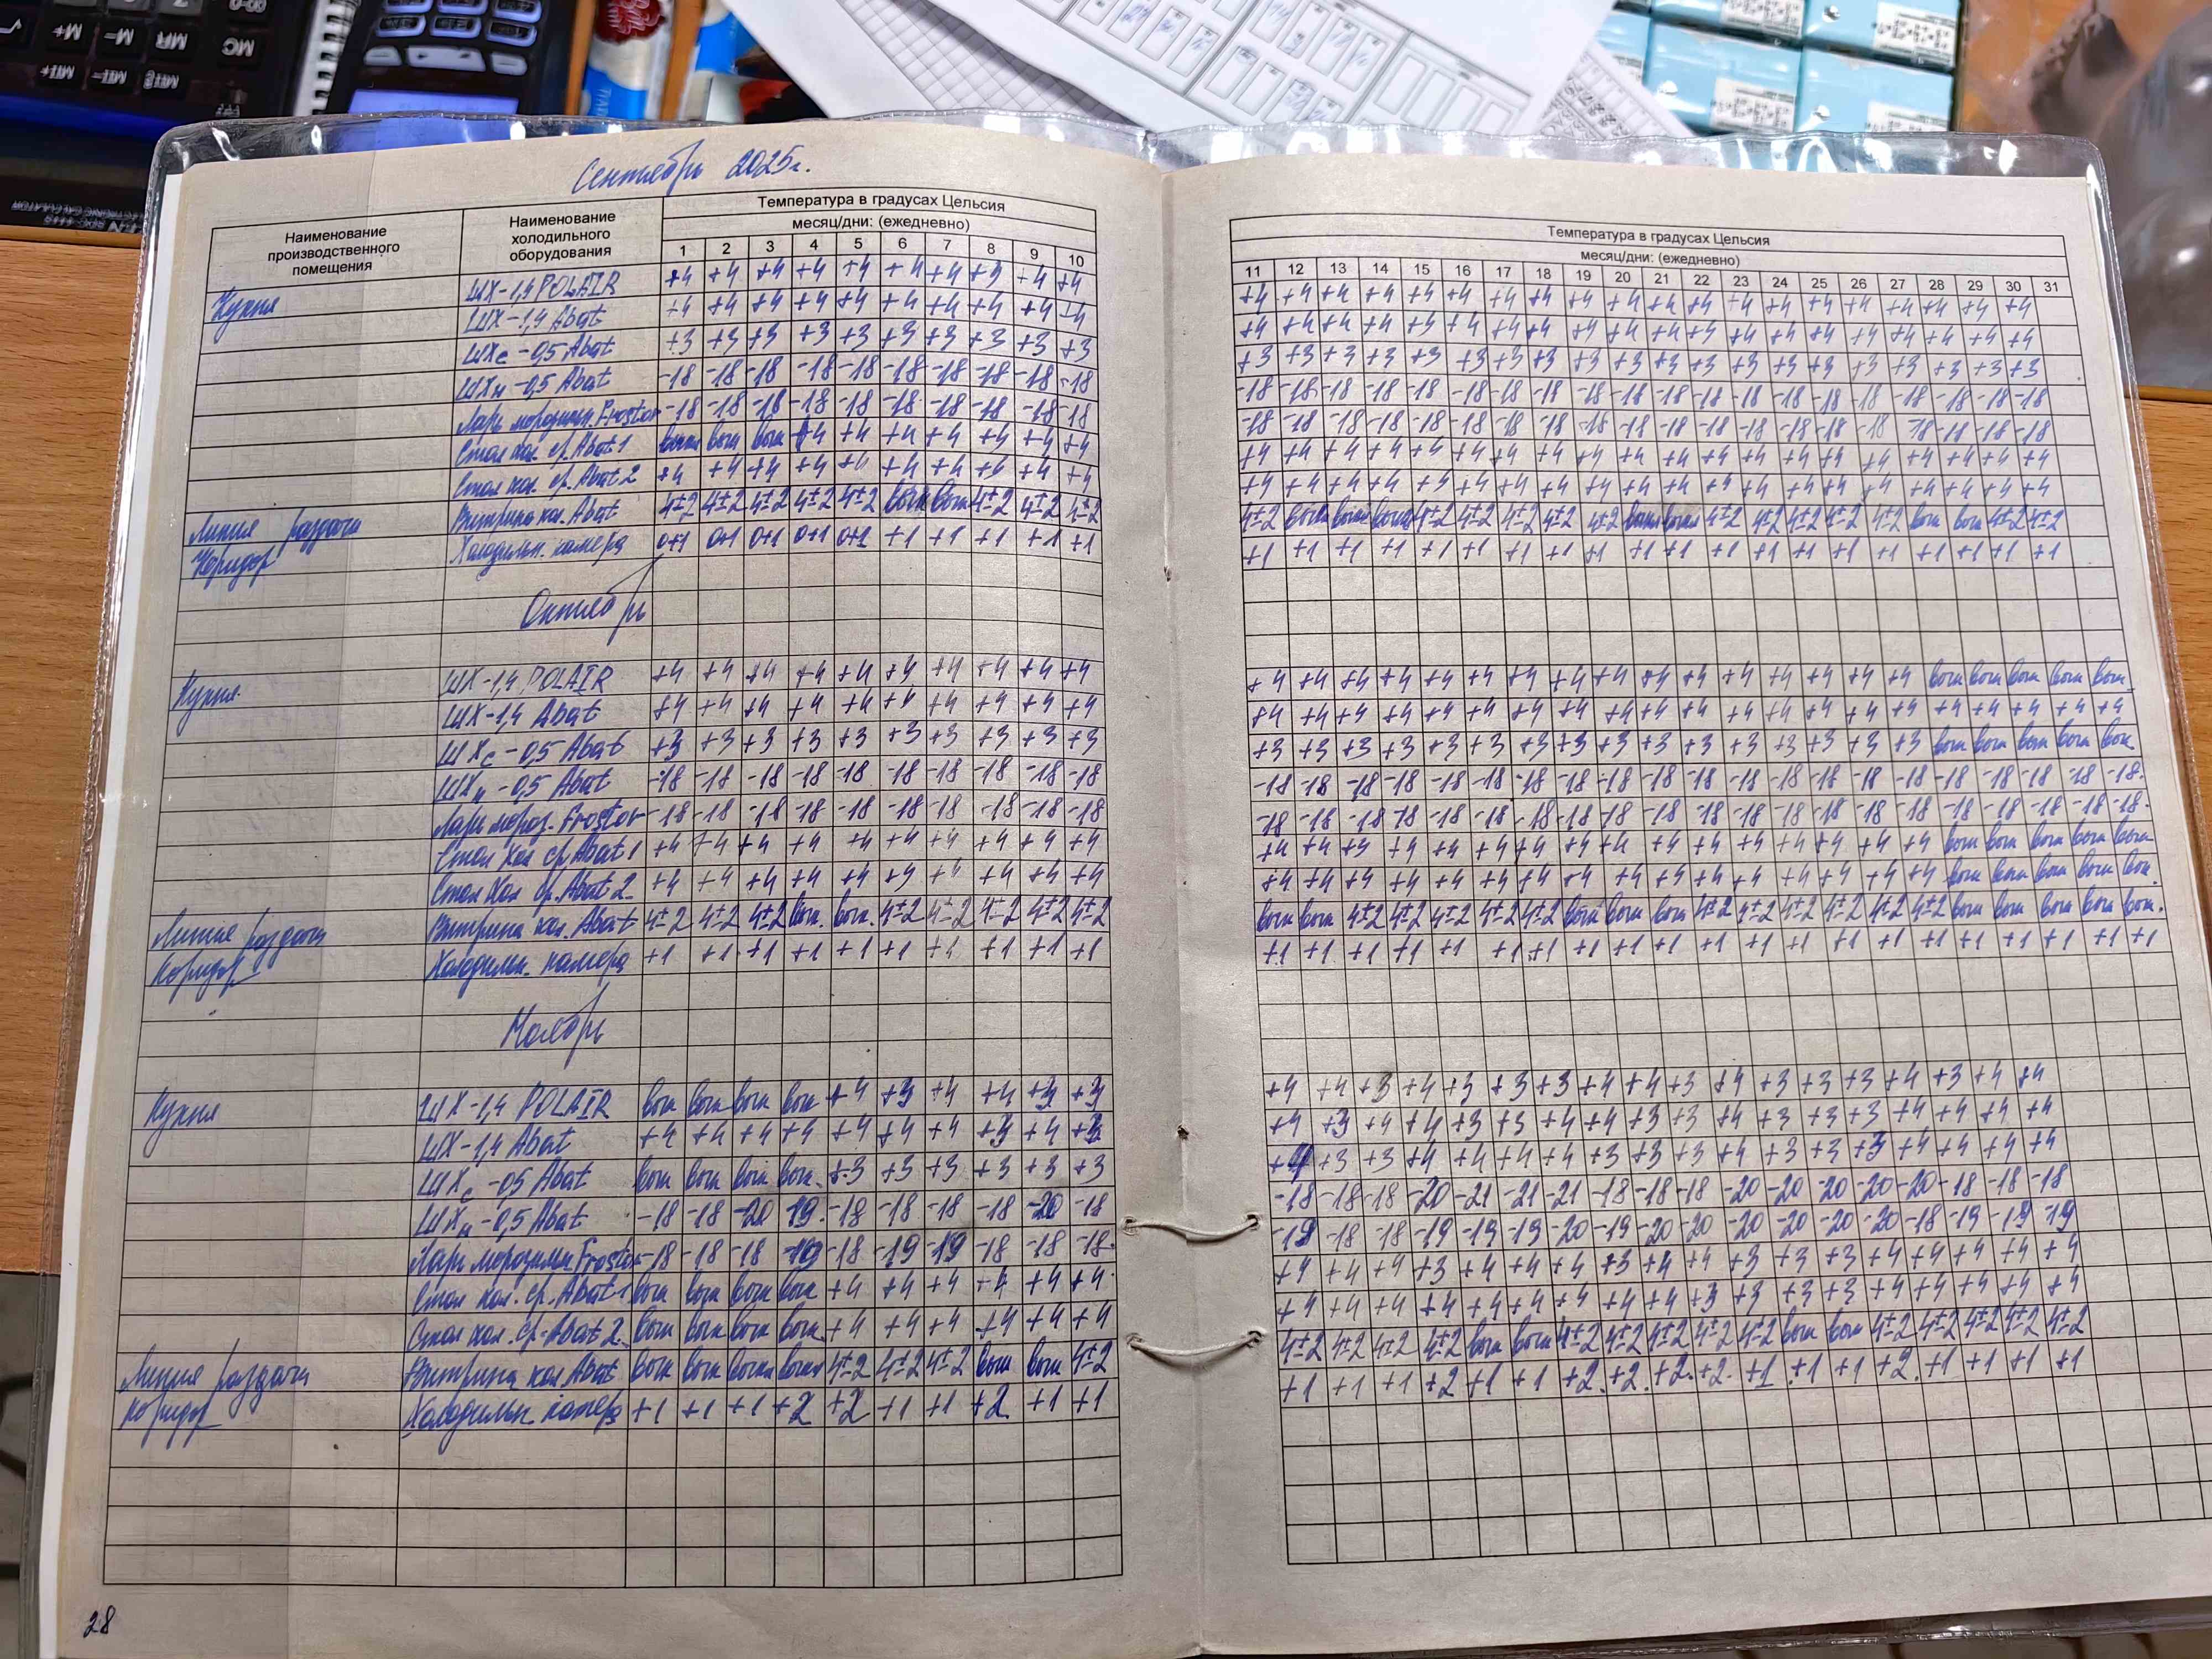 Сентябрь 2025г.
Наименование производственного помещения | Наименование холодильного оборудования | Температура в градусах Цельсия
месяц/дни: (ежедневно)
1 2 3 4 5 6 7 8 9 10
Температура в градусах Цельсия
месяц/дни: (ежедневно)
11 12 13 14 15 16 17 18 19 20 21 22 23 24 25 26 27 28 29 30 31
Кухня ШХ-1,4 POLAIR +4 +4 +4 +4 +4 +4 +4 +3 +4 +4
ШХ-1,4 Abat +4 +4 +4 +4 +4 +4 +4 +4 +4 +4
ШХс-0,5 Abat +3 +3 +3 +3 +3 +3 +3 +3 +3 +3
ШХн-0,5 Abat -18 -18 -18 -18 -18 -18 -18 -18 -18 -18
Ларь морозильн. Frostor -18 -18 -18 -18 -18 -18 -18 -18 -18 -18
Стол хол. ср. Abat 1 выкл выкл выкл +4 +4 +4 +4 +4 +4 +4
Стол хол. ср. Abat 2 +4 +4 +4 +4 +4 +4 +4 +4 +4 +4
Линия раздачи Витрина хол. Abat 4±2 4±2 4±2 4±2 4±2 выкл выкл 4±2 4±2 4±2
Коридор Холодильн. камера 0+1 0+1 0+1 0+1 0+1 +1 +1 +1 +1 +1
Октябрь
Кухня ШХ-1,4 POLAIR +4 +4 +4 +4 +4 +4 +4 +4 +4 +4
ШХ-1,4 Abat +4 +4 +4 +4 +4 +4 +4 +4 +4 +4
ШХс-0,5 Abat +3 +3 +3 +3 +3 +3 +3 +3 +3 +3
ШХн-0,5 Abat -18 -18 -18 -18 -18 -18 -18 -18 -18 -18
Ларь мороз. Frostor -18 -18 -18 -18 -18 -18 -18 -18 -18 -18
Стол хол ср. Abat 1 +4 +4 +4 +4 +4 +4 +4 +4 +4 +4
Стол хол ср. Abat 2 +4 +4 +4 +4 +4 +4 +4 +4 +4 +4
Линия раздачи Витрина хол. Abat 4±2 4±2 4±2 выкл. выкл. 4±2 4±2 4±2 4±2 4±2
Коридор Холодильн. камера +1 +1 +1 +1 +1 +1 +1 +1 +1 +1
Ноябрь
Кухня ШХ-1,4 POLAIR выкл выкл выкл выкл +4 +3 +4 +4 +3 +3
ШХ-1,4 Abat +4 +4 +4 +4 +4 +4 +4 +3 +4 +3
ШХс-05 Abat выкл выкл выкл выкл +3 +3 +3 +3 +3 +3
ШХн-0,5 Abat -18 -18 -20 -19 -18 -18 -18 -18 -20 -18
Ларь морозильн Frostor -18 -18 -18 -19 -18 -19 -19 -18 -18 -18
Стол хол. ср. Abat 1 выкл выкл выкл выкл +4 +4 +4 +4 +4 +4
Стол хол. ср. Abat 2 выкл выкл выкл выкл +4 +4 +4 +4 +4 +4
Линия раздачи Витрина хол Abat выкл выкл выкл выкл 4±2 4±2 4±2 выкл выкл 4±2
Коридор Холодильн. камера +1 +1 +1 +2 +2 +1 +1 +2 +1 +1
28
+4 +4 +4 +4 +4 +4 +4 +4 +4 +4 +4 +4 +4 +4 +4 +4 +4 +4 +4 +4
+4 +4 +4 +4 +4 +4 +4 +4 +4 +4 +4 +4 +4 +4 +4 +4 +4 +4 +4 +4
+3 +3 +3 +3 +3 +3 +3 +3 +3 +3 +3 +3 +3 +3 +3 +3 +3 +3 +3 +3
-18 -18 -18 -18 -18 -18 -18 -18 -18 -18 -18 -18 -18 -18 -18 -18 -18 -18 -18 -18
-18 -18 -18 -18 -18 -18 -18 -18 -18 -18 -18 -18 -18 -18 -18 -18 -18 -18 -18 -18
+4 +4 +4 +4 +4 +4 +4 +4 +4 +4 +4 +4 +4 +4 +4 +4 +4 +4 +4 +4
+4 +4 +4 +4 +4 +4 +4 +4 +4 +4 +4 +4 +4 +4 +4 +4 +4 +4 +4 +4
4±2 выкл выкл выкл 4±2 4±2 4±2 4±2 4±2 выкл выкл 4±2 4±2 4±2 4±2 4±2 выкл выкл 4±2 4±2
+1 +1 +1 +1 +1 +1 +1 +1 +1 +1 +1 +1 +1 +1 +1 +1 +1 +1 +1 +1
+4 +4 +4 +4 +4 +4 +4 +4 +4 +4 +4 +4 +4 +4 +4 +4 выкл выкл выкл выкл выкл
+4 +4 +4 +4 +4 +4 +4 +4 +4 +4 +4 +4 +4 +4 +4 +4 +4 +4 +4 +4 +4
+3 +3 +3 +3 +3 +3 +3 +3 +3 +3 +3 +3 +3 +3 +3 +3 выкл выкл выкл выкл выкл
-18 -18 -18 -18 -18 -18 -18 -18 -18 -18 -18 -18 -18 -18 -18 -18 -18 -18 -18 -18 -18
-18 -18 -18 -18 -18 -18 -18 -18 -18 -18 -18 -18 -18 -18 -18 -18 -18 -18 -18 -18 -18
+4 +4 +4 +4 +4 +4 +4 +4 +4 +4 +4 +4 +4 +4 +4 +4 выкл выкл выкл выкл выкл
+4 +4 +4 +4 +4 +4 +4 +4 +4 +4 +4 +4 +4 +4 +4 +4 выкл выкл выкл выкл выкл.
выкл выкл 4±2 4±2 4±2 4±2 4±2 выкл выкл выкл 4±2 4±2 4±2 4±2 4±2 4±2 выкл выкл выкл выкл выкл.
+1 +1 +1 +1 +1 +1 +1 +1 +1 +1 +1 +1 +1 +1 +1 +1 +1 +1 +1 +1 +1
+4 +4 +3 +4 +3 +3 +3 +4 +4 +3 +4 +3 +3 +3 +4 +3 +4 +4
+4 +3 +4 +4 +3 +3 +4 +4 +3 +3 +4 +3 +3 +3 +4 +4 +4 +4
+4 +3 +3 +4 +4 +4 +4 +3 +3 +3 +4 +3 +3 +3 +4 +4 +4 +4
-18 -18 -18 -20 -21 -21 -21 -18 -18 -18 -20 -20 -20 -20 -20 -18 -18 -18
-19 -18 -18 -19 -19 -19 -20 -19 -20 -20 -20 -20 -20 -20 -18 -19 -19 -19
+4 +4 +4 +3 +4 +4 +4 +3 +4 +4 +3 +3 +3 +4 +4 +4 +4 +4
+4 +4 +4 +4 +4 +4 +4 +4 +4 +3 +3 +3 +3 +4 +4 +4 +4 +4
4±2 4±2 4±2 4±2 выкл выкл 4±2 4±2 4±2 4±2 4±2 выкл выкл 4±2 4±2 4±2 4±2 4±2
+1 +1 +1 +2 +1 +1 +2 +2 +2 +2 +1 +1 +1 +2 +1 +1 +1 +1